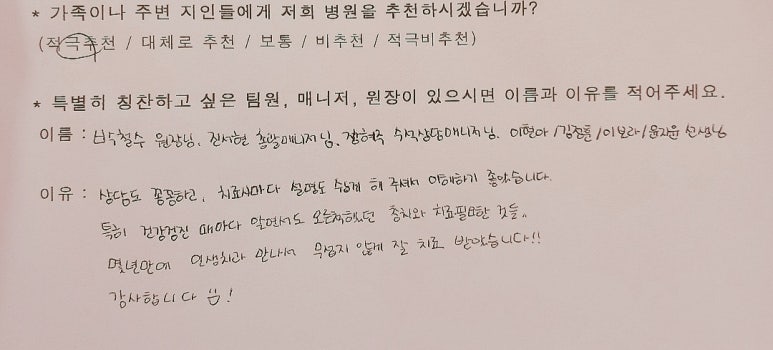 * 가족이나 주변 지인들에게 저희 병원을 추천하시겠습니까?
(적극추천 / 대체로 추천 / 보통 / 비추천 / 적극비추천)
* 특별히 칭찬하고 싶은 팀원, 매니저, 원장이 있으시면 이름과 이유를 적어주세요.
이름 : 박철수 원장님, 진서현 총괄매니저님, 수석상담매니저님. 이현아 / 김진훈 / 이보라 / 윤자윤 선생님
이유 : 상담도 꼼꼼하고, 치료시마다 설명도 쉽게 해 주셔서 이해하기 좋았습니다.
특히 건강검진 때마다 알면서도 모른척했던 충치와 치료필요한 것들..
몇년만에 인생치과 만나서 무섭지 않게 잘 치료 받았습니다!!
감사합니다 !